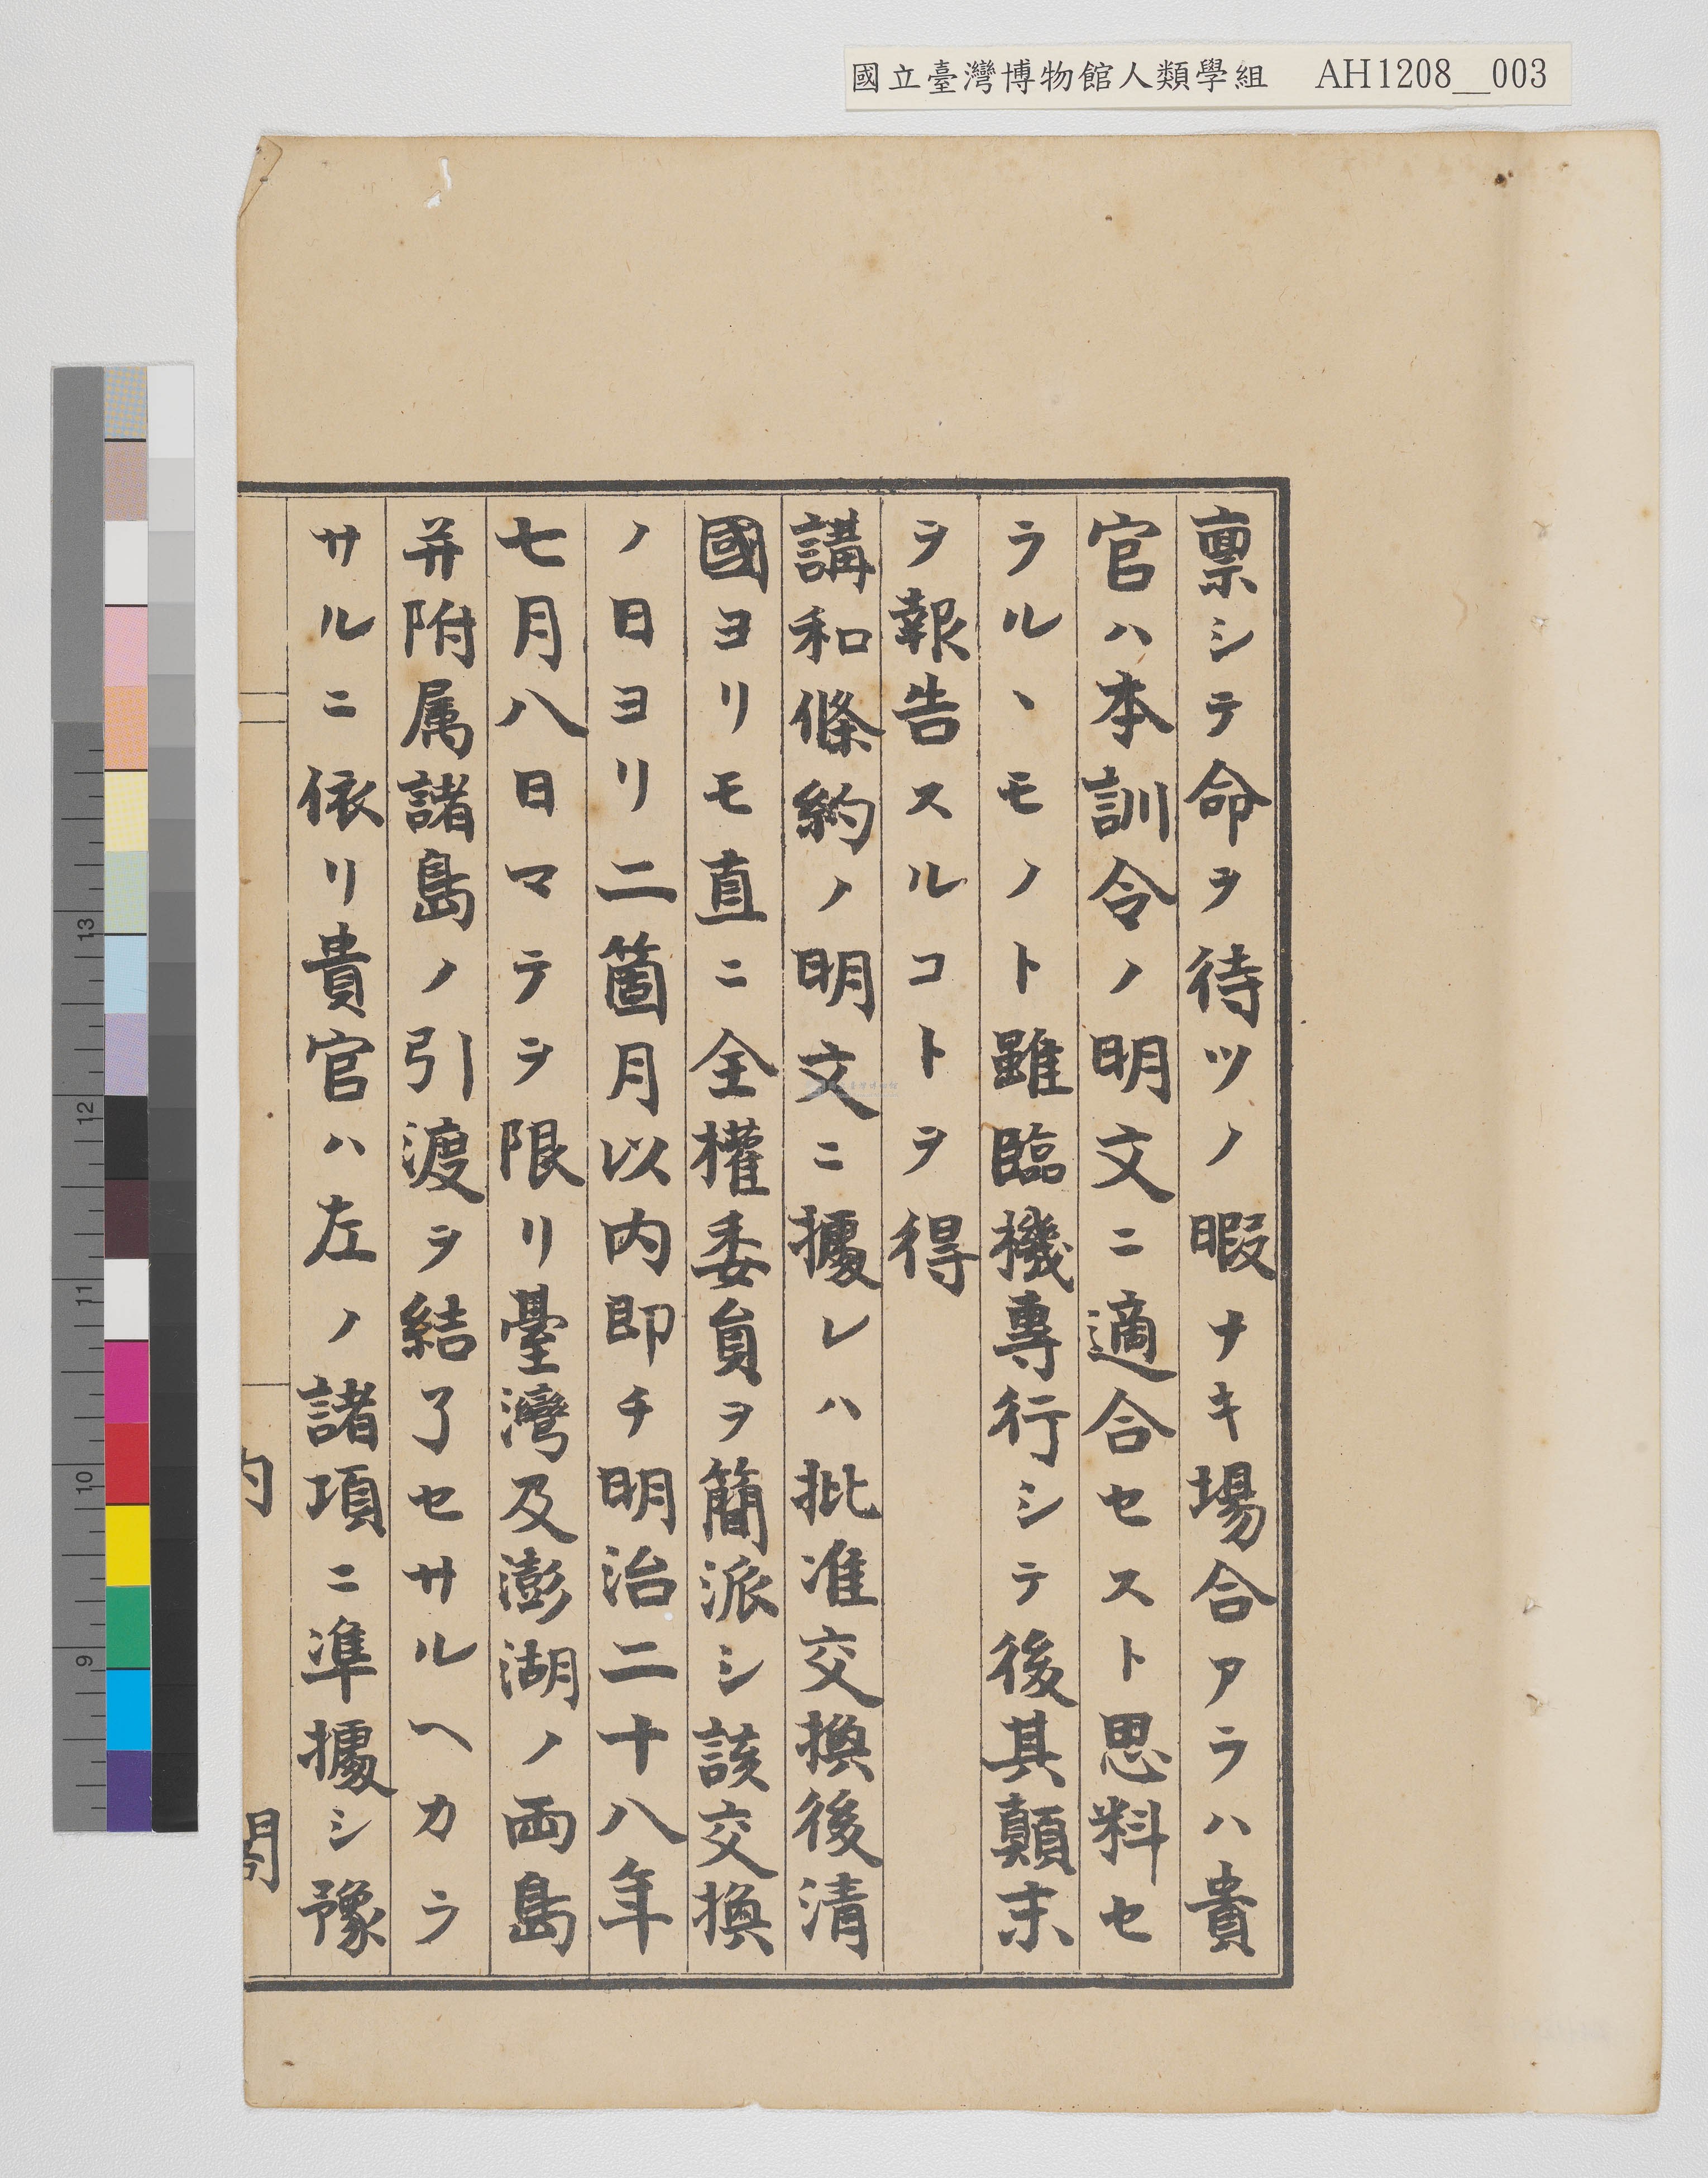 國立臺灣博物館人類學組 AH1208__003
稟シテ命ヲ待ツノ暇ナキ場合アラハ貴
官ハ本訓令ノ明文ニ適合セスト思料セ
ラルヽモノト雖臨機專行シテ後其顛末
ヲ報告スルコトヲ得
講和條約ノ明文ニ據レハ批准交換後清
國ヨリモ直ニ全權委員ヲ簡派シ該交換
ノ日ヨリ二箇月以内即チ明治二十八年
七月八日マテヲ限リ臺灣及澎湖ノ両島
并附属諸島ノ引渡ヲ結了セサルヘカラ
サルニ依リ貴官ハ左ノ諸項ニ準據シ豫
内
閣
13
12
11
10
9